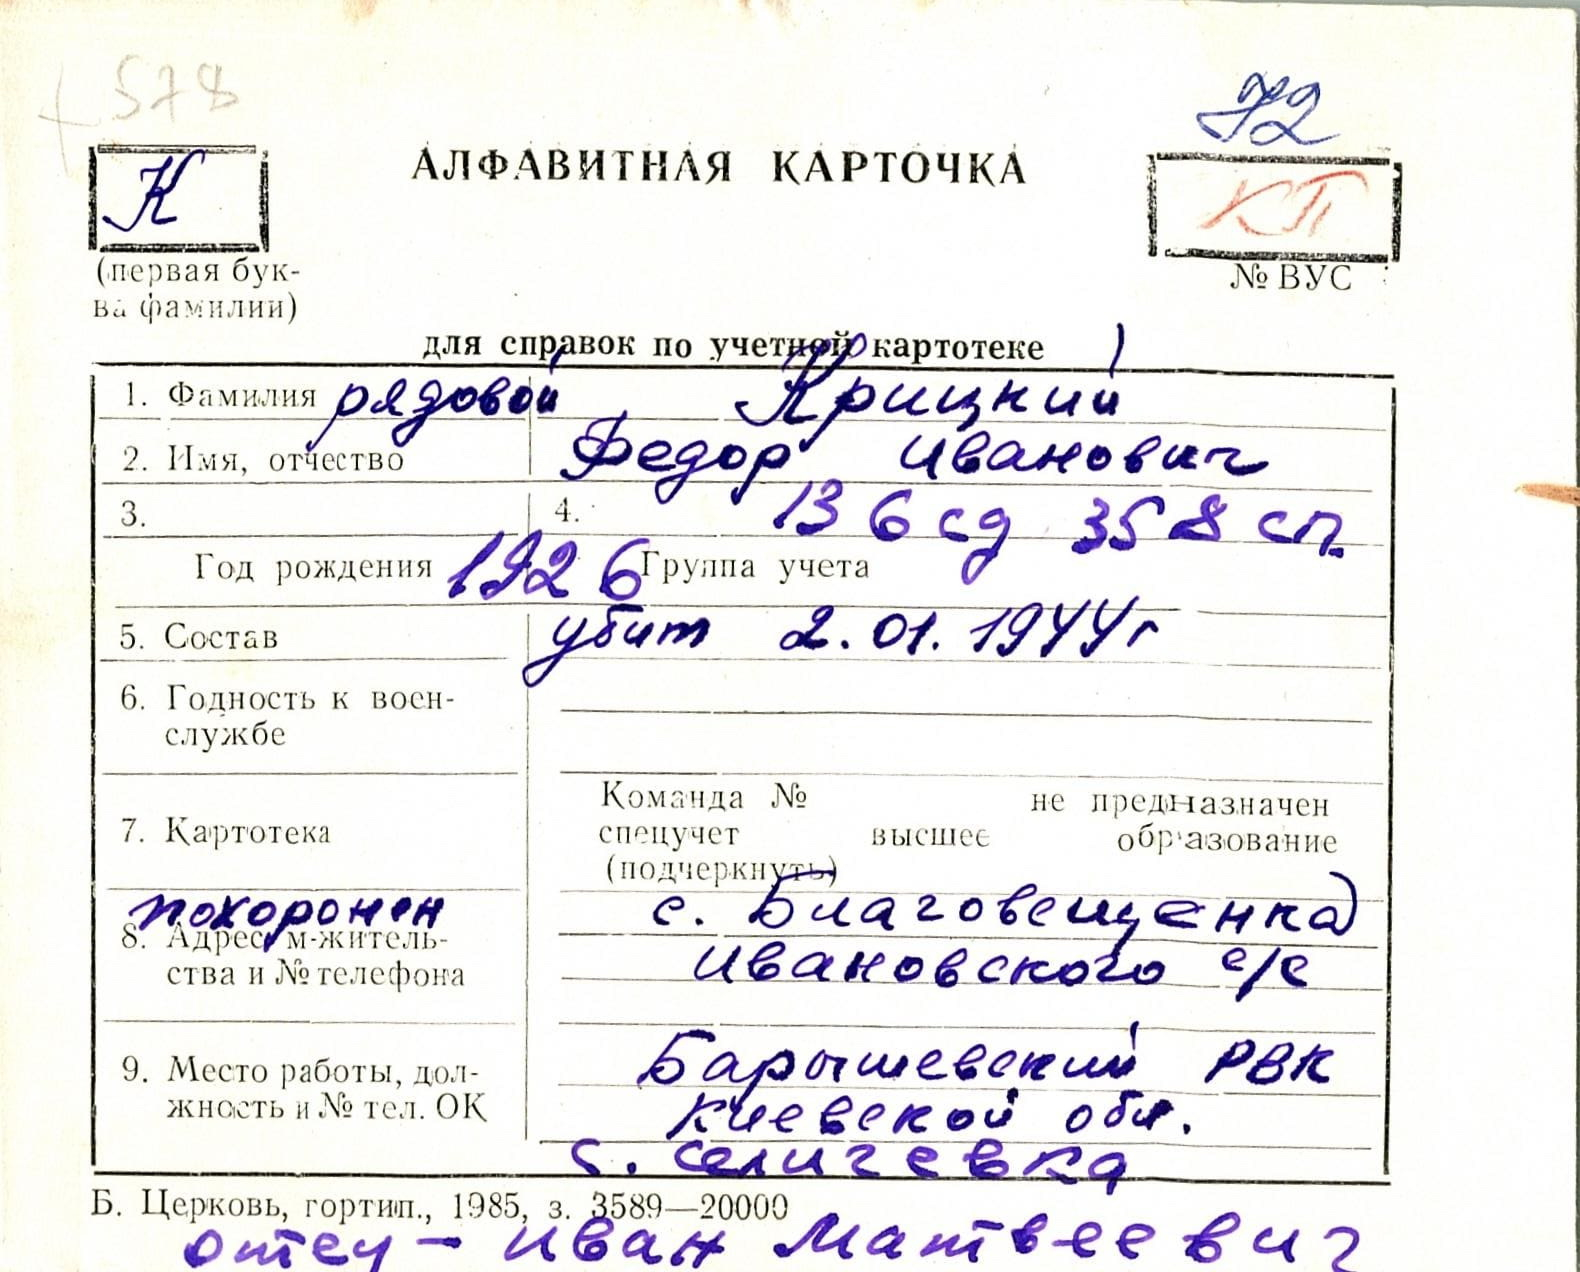 578
72
К
АЛФАВИТНАЯ КАРТОЧКА
КП
(первая бук-
ва фамилии)
№ ВУС
для справок по учетной картотеке
1. Фамилия рядовой Крицкий
2. Имя, отчество Федор Иванович
3. 4. 136 сд 358 сп.
Год рождения 1926 Группа учета
5. Состав убит 2.01.1944 г
6. Годность к воен-
службе
Команда № не предназначен
7. Картотека спецучет высшее образование
(подчеркнуть)
похоронен с. Благовещенка
8. Адрес м-житель-
ства и № телефона Ивановского с/с
9. Место работы, дол-
жность и № тел. ОК
Барышевский РВК
Киевской обл.
с. Селичевка
Б. Церковь, гортип., 1985, з. 3589—20000
отец - Иван Матвеевич